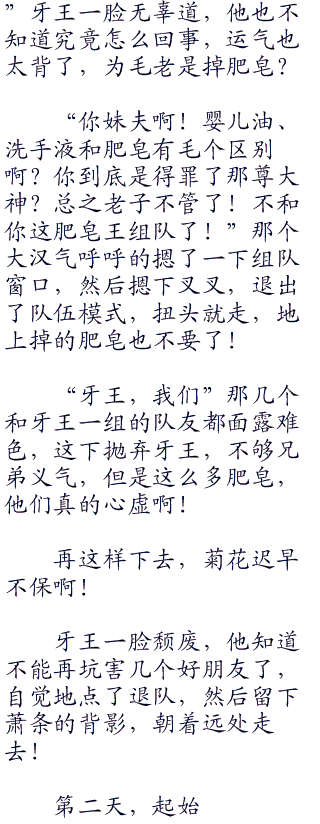 ”牙王一脸无辜道，他也不
知道究竟怎么回事，运气也
太背了，为毛老是掉肥皂？
“你妹夫啊！婴儿油、
洗手液和肥皂有毛个区别
啊？你到底是得罪了那尊大
神？总之老子不管了！不和
你这肥皂王组队了！”那个
大汉气呼呼的摁了一下组队
窗口，然后摁下叉叉，退出
了队伍模式，扭头就走，地
上掉的肥皂也不要了！
“牙王，我们”那几个
和牙王一组的队友都面露难
色，这下抛弃牙王，不够兄
弟义气，但是这么多肥皂，
他们真的心虚啊！
再这样下去，菊花迟早
不保啊！
牙王一脸颓废，他知道
不能再坑害几个好朋友了，
自觉地点了退队，然后留下
萧条的背影，朝着远处走
去！
第二天，起始